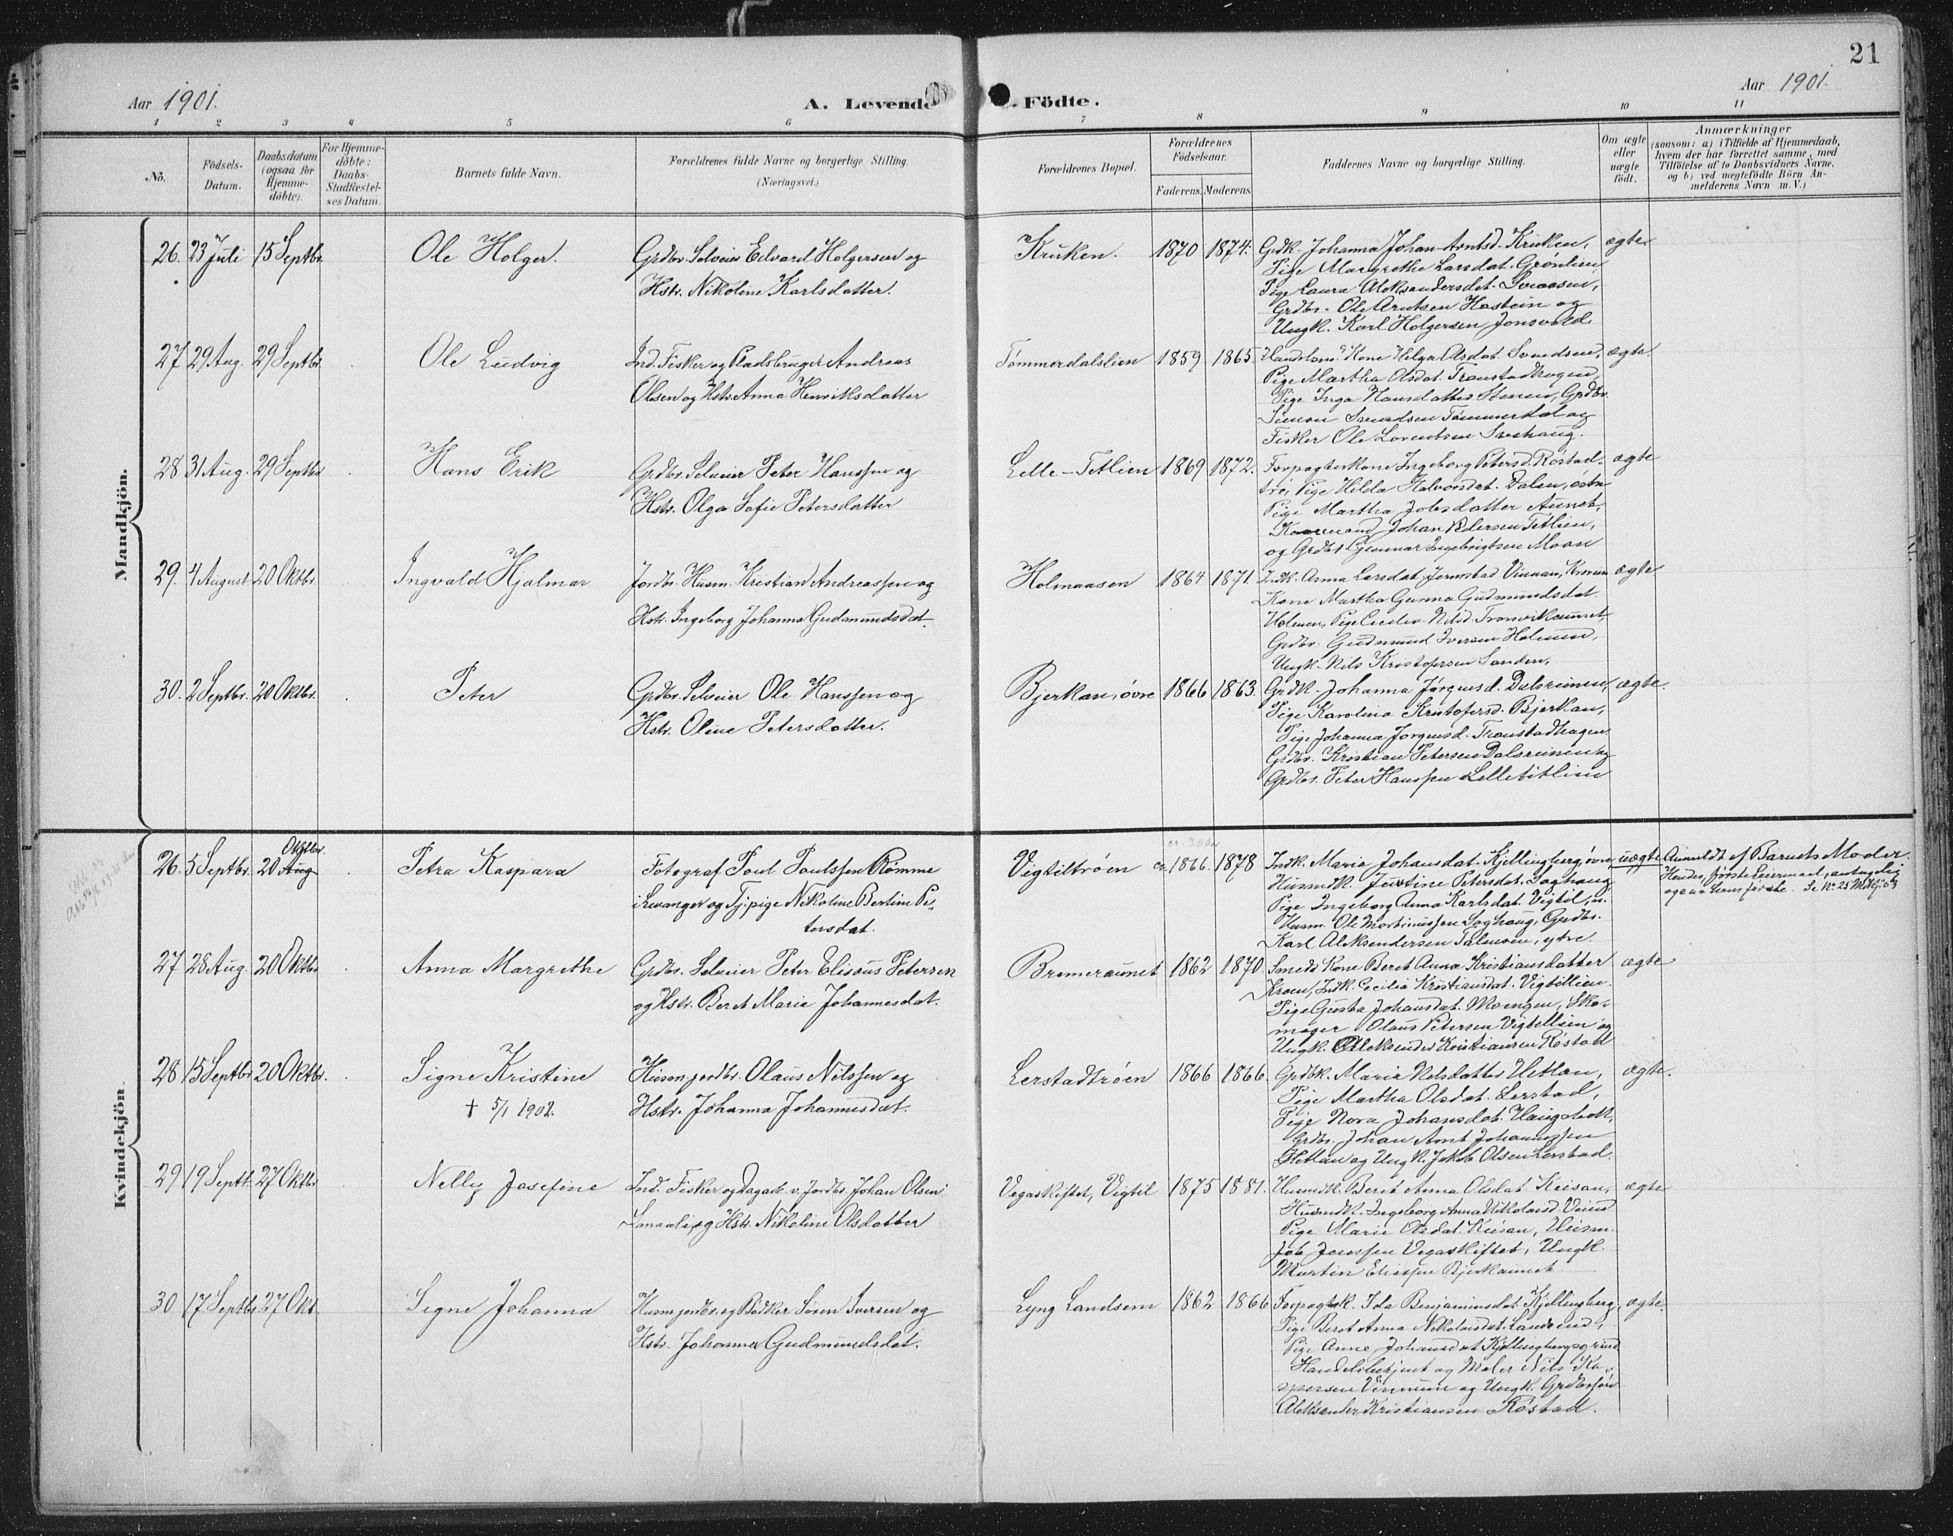 21
Aar 1901.
A. Levende
Födte.
Aar 1901.
1 2 3 4 5 6 7 8 9 10 11
No.
Födsels-
Datum.
Daabsdatum
(ogsaa for
Hjemme-
döbte).
For Hjemme-
döbte:
Daabs-
Stadfæstel-
ses Datum.
Barnets fulde Navn.
Forældrenes fulde Navne og borgerlige Stilling.
(Næringsvei.)
Forældrenes Bopæl.
Forældrenes
Födselsaar.
Faderens. Moderens.
Faddernes Navne og borgerlige Stilling.
Om ægte
eller
uægte
født.
Anmærkninger
(saasom: a) i Tilfælde af Hjemmedaab,
hvem der har forrettet samme, med
Tilföielse af to Daabsvidners Navne,
og b) ved uægtefödte Börn An-
melderens Navn m. V.)
Mandkjön.
26. 23 Juli 15 Septbr. Ole Holger.
Grdbr. Selveier Edvard Holgersen og
Hstr. Nikoline Karlsdatter.
Kruken. 1870 1874.
Grdk. Johanna Johan-Arntsd. Kruken,
Pige Margrethe Larsdat. Grönlien
Pige Laura Aleksandersdat.
Grdbr. Ole Arntsen Hastein og
Ungk. Karl Holgersen Jonsvold.
ægte
27 29 Aug. 29 Septbr. Ole Ludvig
Ind. Fisker og Pladsbruger Andreas
Olsen og Hstr. Anna Henriksdatter
Tömmerdalslien 1859 1865.
Kone Helga Olsdat. Svendsen,
Pige Martha Olsdat. Tronstadhagen,
Pige Inga Hansdatter Stenen, Grdbr.
Simon Svendsen Tömmerdal og
Fisker Ole Lorentsen
ægte.
28 31 Aug. 29 Septbr. Hans Erik
Grdbr. Selveier Peter Hanssen og
Hstr. Olga Sofie Petersdatter
Lelle-Tetlien 1869 1872.
Forpagterkone Ingeborg Petersd. Röstad-
trö, Pige Hilda Halvorsdat. Dalen,
Pige Martha Jobsdatter Aunet,
Johan Pedersen Tetlien,
og Grdbr. Gunnar Ingebrigtsen Moan
ægte
29. 4 August 20 Oktbr. Ingvald Hjalmar
Jordbr. Husm. Kristian Andreassen og
Hstr. Ingeborg Johanna Gudmundsdat.
Holmaasen 1864 1871.
Indk. Anna Larsdat. Jermstad Vinnan,
Kone Martha Gurina Gudmundsdat.
Holmen, Pige Cecilie Nilsd. Tronvikaunet,
Grdbr. Gudmund Iversen Holmen,
Ungk. Nils Kristofersen Sanden.
ægte
30. 2 Septbr. 20 Oktbr. Peter
Grdbr. Selveier Ole Hanssen og
Hstr. Oline Petersdatter.
Bjerkan, övre 1866 1863.
Grdk. Johanna Jörgensd. Dalsreinen,
Pige Karolina Kristofersd. Bjerkan,
Pige Johanna Jörgensd. Tronstadhagen
Grdbr. Kristian Petersen Dalsreinen og
Grdbr. Peter Hanssen Lelletetlien
ægte.
Kvindekjön
26. 5 Septbr. 20 Oktbr. Aug Petra Kaspara
Fotograf Poul Poulssen Römme
i Levanger og Tj. pige Nikoline Bertine Pe-
tersdat.
Vigtiltröen ca. 1866. 1878
Indk. Maria Johansdat. Kjellingberg övre
Husmdk. Justine Petersdat. Soghaug
Pige Ingeborg Anna Karlsdat. Vigtil,
Husm. Ole Martinussen Soghaug, Grdbr.
Karl Aleksandersen Talmoen, ytre.
uægte
Anmeldt af Barnets Moder.
Hendes første Leiermaal, antagelig
ogsaa hans første.
27 28 Aug. 20 Oktbr Anna Margrethe
Grdbr. Selveier Peter Elisæus Petersen
og Hstr. Beret Maria Johannesdat.
Bremeraunet 1862 1870.
Smeds Kone Beret Anna Kristiansdatter
Indk. Cecilia Kristiansdat. Vigtillien
Pige Gusta Johansdat. Moengen, Sko-
mager Olaus Petersen Vigtillien og
Ungk. Aleksander Kristiansen Röstad
ægte
28 15 Septbr 20 Oktbr. Signe Kristine
† 5/1 1902.
Husm. jordbr. Olaus Nilssen og
Hstr. Johanna Johannesdat.
Lerstadtröen 1866 1866.
Grdbk. Maria Nilsdatter Hetlan,
Pige Martha Olsdat. Lerstad,
Pige Nora Johansdat. Haugskott,
Grdbr. Johan Arnt Johannessen
Hetlan og Ungk. Jakob Olsen Lerstad.
ægte.
29 19 Septb. 27 Oktbr Nelly Josefine
Ind. Fisker og Dagarb. v. Jordbr. Johan Olsen
Smaali og Hstr. Nikoline Olsdatter
Vegaskiftet, Vigtil 1875 1881.
Husmdk. Beret Anna Olsdat. Keisan,
Husmdk. Ingeborg Anna Nikolaisd.
Pige Marie Olsdat. Keisan, Husm.
Job Jenssen Vegaskiftet, Ungk.
Martin Eliassen Bjerkaunet
ægte
30 17 Septbr 27 Okt. Signe Johanna
Husm. jordbr. og Bödker Sören Iversen og
Hstr. Johanna Gudmundsdat.
Lyng Landsem 1862 1866
Forpagtk. Ida Benjaminsdat. Kjellingberg,
Pige Beret Anna Nikolaisdat. Landsem,
Pige Anne Johansdat. Kjellingberg
Handelsbetjent og Maler Nils Ka-
spersen Vinnum og Ungk. Grdbrsøn
Aleksander Kristiansen Röstad.
ægte.